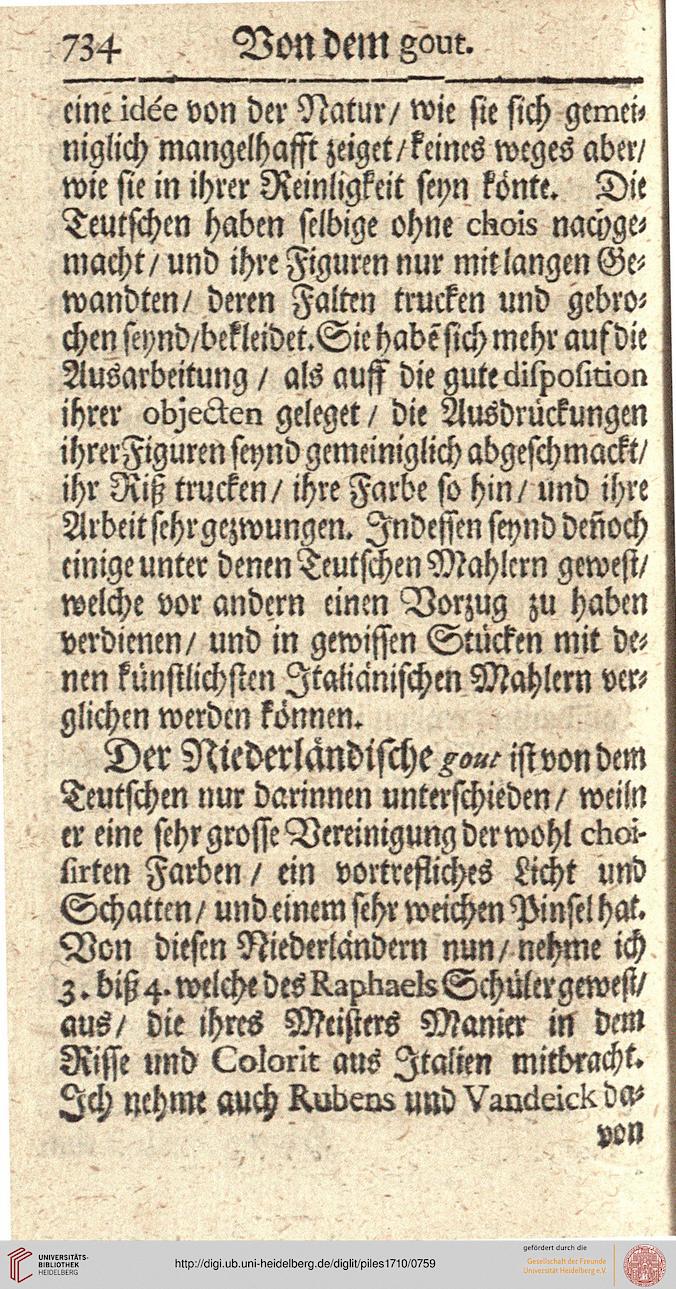 734 Von dem gout.
eine idée von der Natur/ wie sie sich gemei⸗
niglich mangelhafft zeiget/keines weges aber/
wie sie in ihrer Reinligkeit seyn könte. Die
Teutschen haben selbige ohne chois nachge⸗
macht/ und ihre Figuren nur mit langen Ge⸗
wandten/ deren Falten trucken und gebro⸗
chen seynd/bekleidet. Sie habē sich mehr auf die
Ausarbeitung / als auff die gute disposition
ihrer objecten geleget / die Ausdrückungen
ihrer Figuren seynd gemeiniglich abgeschmackt/
ihr Riß trucken/ ihre Farbe so hin/ und ihre
Arbeit sehr gezwungen. Indessen seynd deñoch
einige unter denen Teutschen Mahlern gewest/
welche vor andern einen Vorzug zu haben
verdienen/ und in gewissen Stücken mit de⸗
nen künstlichsten Italiänischen Mahlern ver⸗
glichen werden können.
Der Niederländische gout ist von dem
Teutschen nur darinnen unterschieden/ weiln
er eine sehr grosse Vereinigung der wohl choi-
sirten Farben / ein vortrefliches Licht und
Schatten/ und einem sehr weichen Pinsel hat.
Von diesen Niederländern nun/ nehme ich
3. biß 4. welche des Raphaels Schüler gewest/
aus/ die ihres Meisters Manier in dem
Risse und Colorit aus Italien mitbracht.
Ich nehme auch Rubens und Vandeick da⸗
von
UNIVERSITÄTS-
BIBLIOTHEK
HEIDELBERG
http://digi.ub.uni-heidelberg.de/diglit/piles1710/0759
gefördert durch die
Gesellschaft der Freunde
Universität Heidelberg e.V.